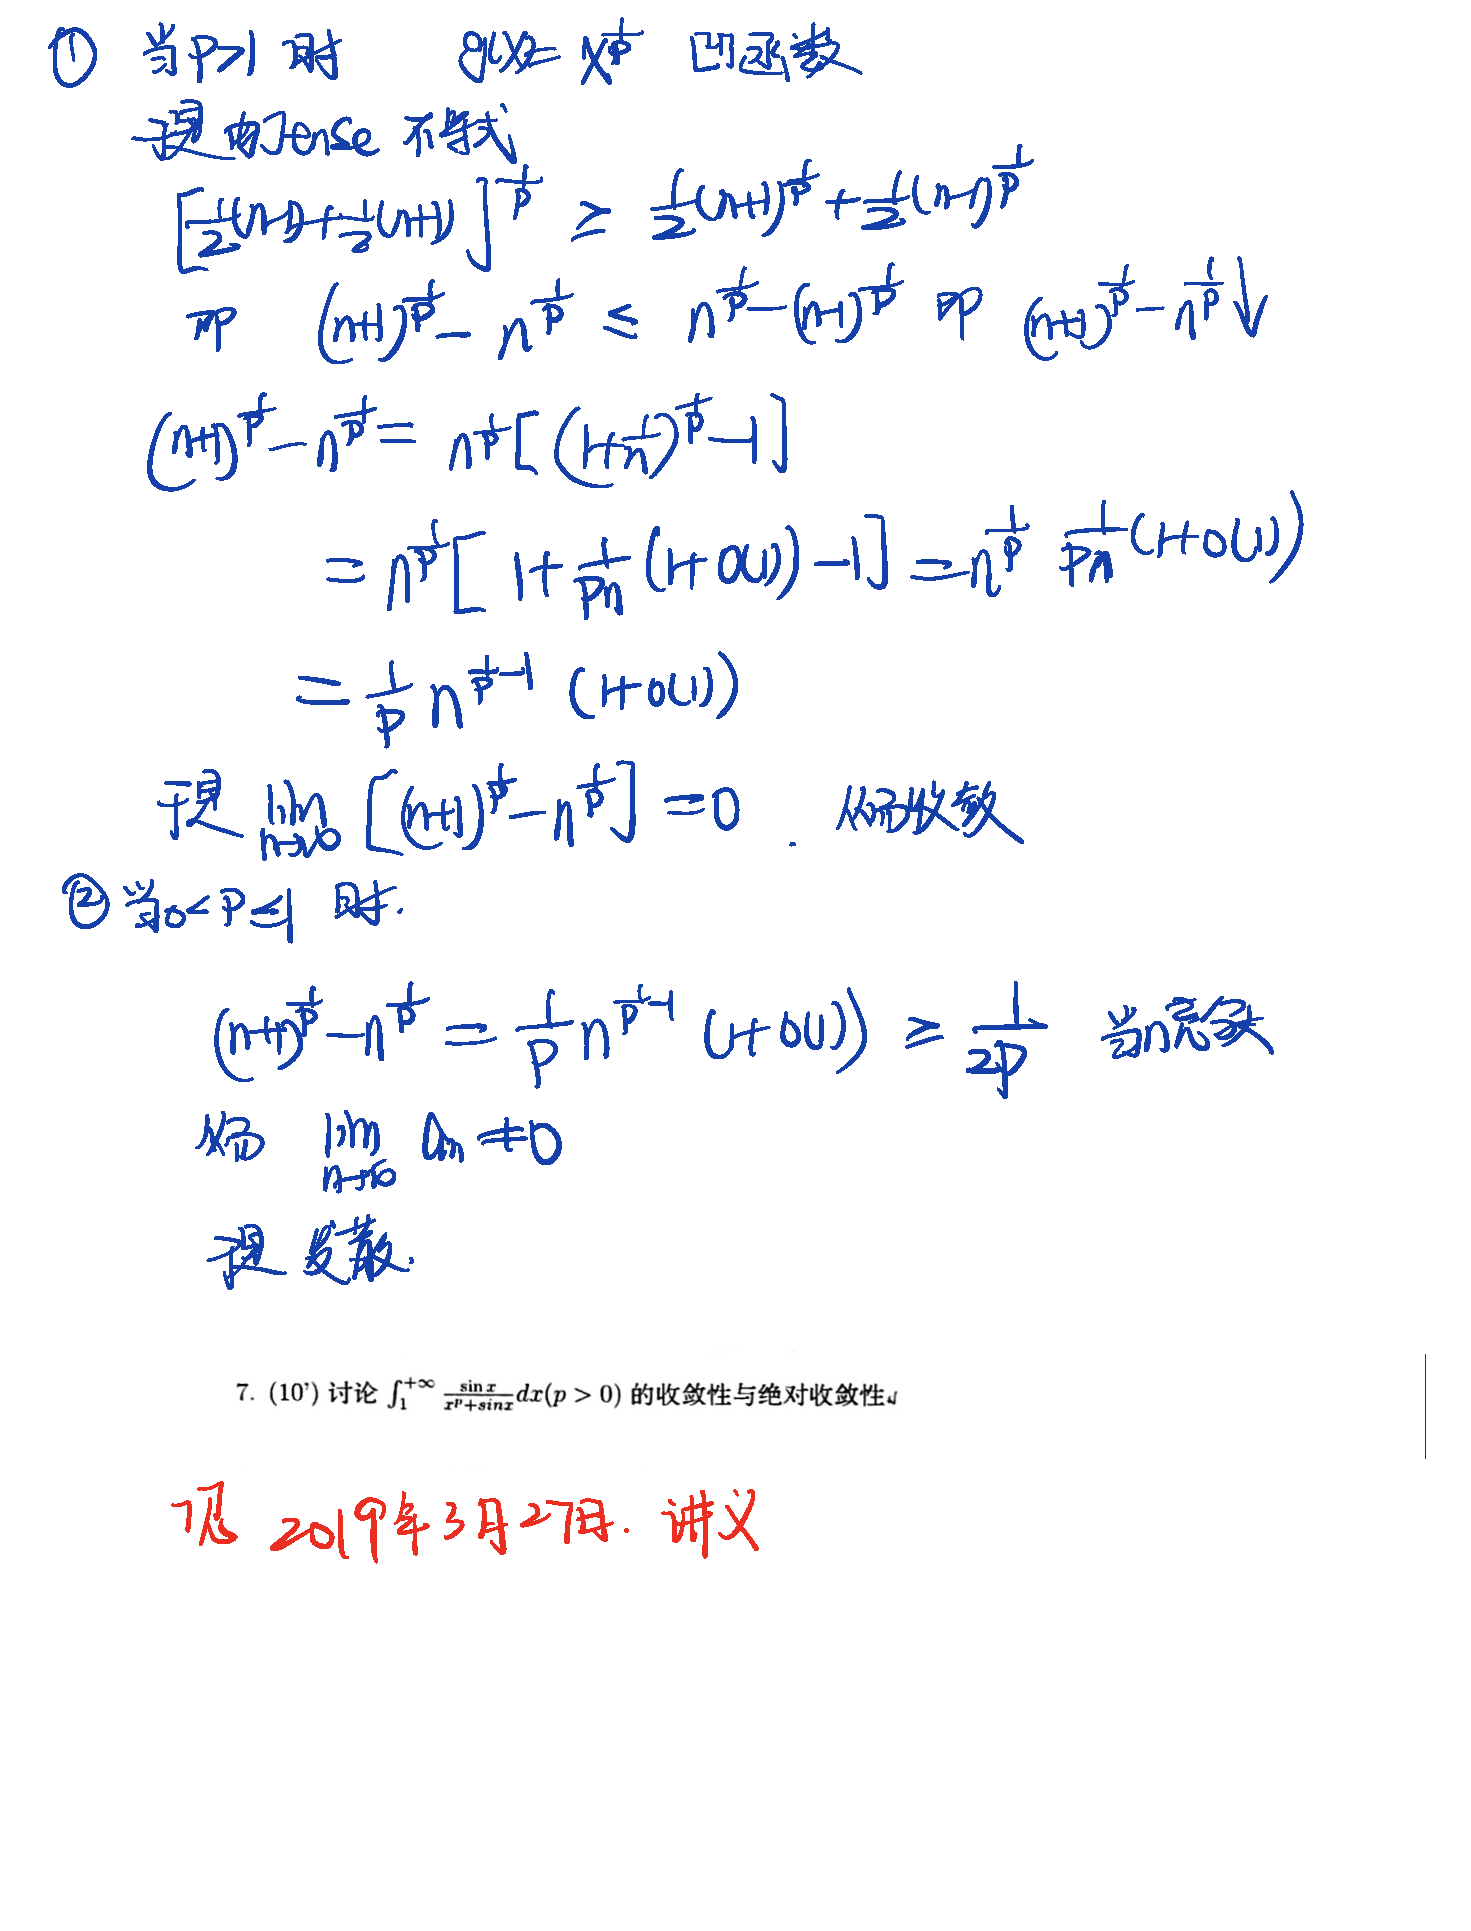 ① 当p>1时 g(x)=x^{1/p} 凹函数
于是由Jense不等式
[1/2(n-1)+1/2(n+1)]^{1/p} ≥ 1/2(n+1)^{1/p}+1/2(n-1)^{1/p}
即 (n+1)^{1/p}-n^{1/p} ≤ n^{1/p}-(n-1)^{1/p} 即 (n+1)^{1/p}-n^{1/p}↓
(n+1)^{1/p}-n^{1/p}= n^{1/p}[(1+1/n)^{1/p}-1]
=n^{1/p}[1+1/pn(1+o(1))-1]=n^{1/p} 1/pn(1+o(1))
=1/p n^{1/p-1}(1+o(1))
于是 lim n→∞ [(n+1)^{1/p}-n^{1/p}]=0. 从而收敛
② 当0<p≤1时.
(n+1)^{1/p}-n^{1/p}=1/p n^{1/p-1}(1+o(1)) ≥ 1/2p 当n充分大
从而 lim n→∞ an≠0
于是发散.
7. (10') 讨论 ∫_1^{+∞} sin x/(x^p+sinx) dx(p > 0) 的收敛性与绝对收敛性.
见 2019年3月27日. 讲义